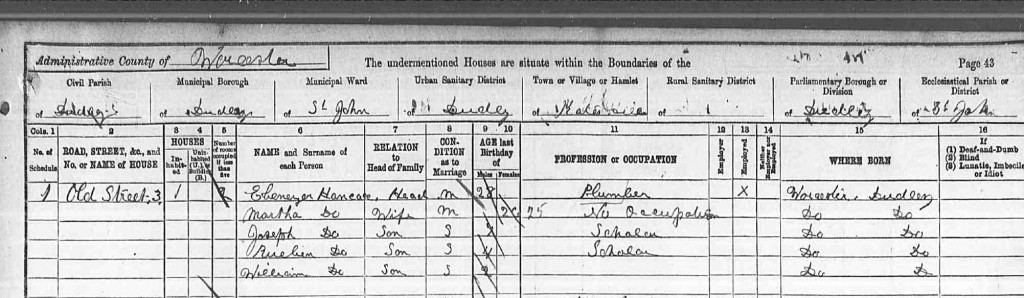 Administrative County of Worcester The undermentioned Houses are situate within the Boundaries of the Page 43
Civil Parish Municipal Borough Municipal Ward Urban Sanitary District Town or Village or Hamlet Rural Sanitary District Parliamentary Borough or Division Ecclesiastical Parish or District
of Dudley of Dudley of St John of Dudley of of of Dudley of St John
Cols. 1 2 3 4 5 6 7 8 9 10 11 12 13 14 15 16
No. of Schedule ROAD, STREET, &c., and No. or NAME of HOUSE HOUSES Inhabited Uninhabited (U.), or Building (B.) Number of rooms occupied if less than five NAME and Surname of each Person RELATION to Head of Family CONDITION as to Marriage AGE last Birthday of Males Females PROFESSION or OCCUPATION Employer Employed Neither Employer nor Employed WHERE BORN If (1) Deaf-and-Dumb (2) Blind (3) Lunatic, Imbecile or Idiot
1 Old Street, 3 1 Ebenezer Head M 28 Plumber X Worcester, Dudley
Martha Do Wife M 25 No Occupation Do Do
Joseph Do Son S Scholar Do Do
Do Son S 4 Scholar Do Do
William Do Son S 2 Do Do